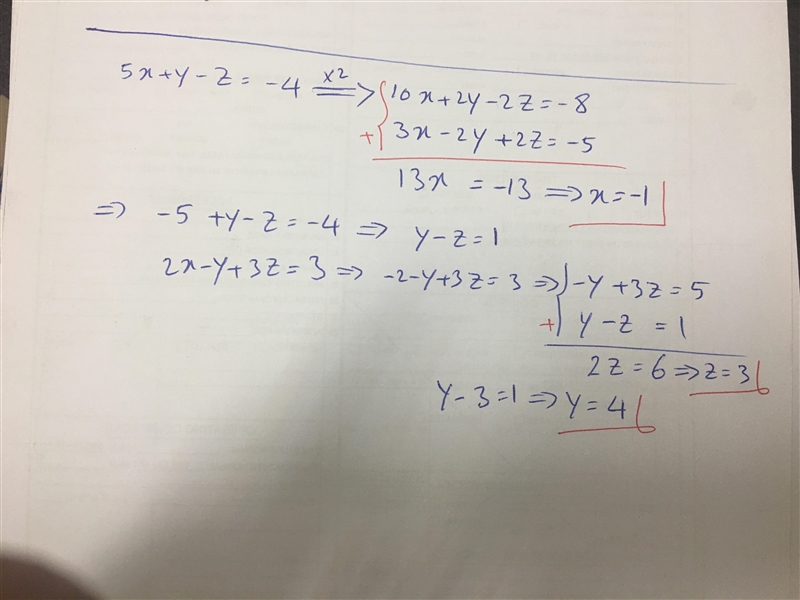 5x+y-z=-4 ×2⟹ { 10x+2y-2z=-8
+ 3x-2y+2z=-5
13x =-13 ⟹ x=-1
⟹ -5+y-z=-4 ⟹ y-z=1
2x-y+3z=3 ⟹ -2-y+3z=3 ⟹ { -y+3z=5
+ y-z =1
2z=6 ⟹ z=3
y-3=1 ⟹ y=4